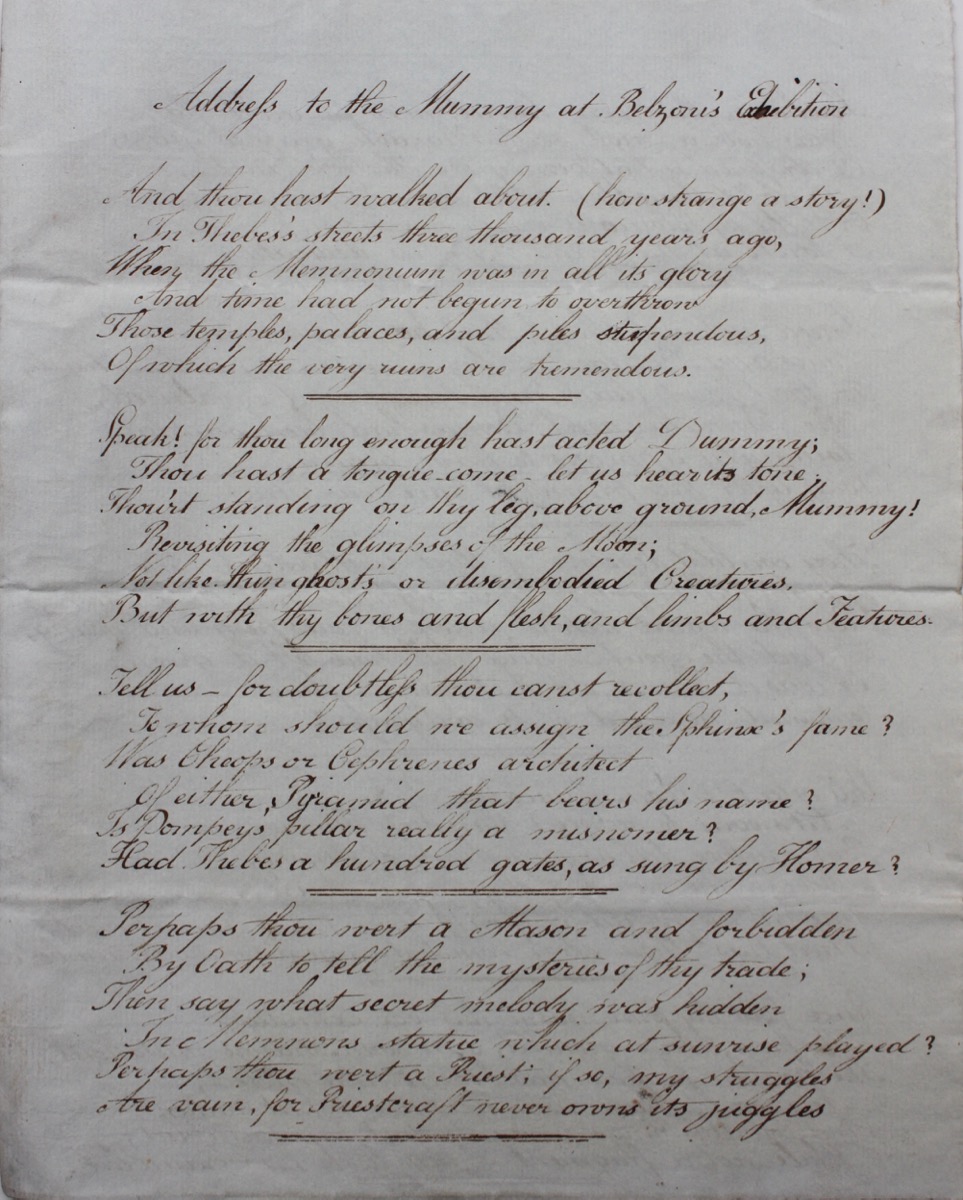 Address to the Mummy at Belzoni's Exhibition
And thou hast walked about. (how strange a story!)
In Thebes's streets three thousand years ago,
When the Memnonium was in all its glory
And time had not begun to overthrow
Those temples, palaces, and piles stupendous,
Of which the very ruins are tremendous.
Speak! for thou long enough hast acted Dummy;
Thou hast a tongue - come - let us hear its tone;
Thou'rt standing on thy leg, above ground, Mummy!
Revisiting the glimpses of the Moon;
Not like thin ghosts or disembodied Creatures.
But with thy bones and flesh, and limbs and Features.
Tell us - for doubtless thou canst recollect,
To whom should we assign the Sphinx's fame?
Was Cheops or Cephrenes architect
Of either Pyramid that bears his name?
Is Pompey's pillar really a misnomer?
Had Thebes a hundred gates, as sung by Homer?
Perpaps thou wert a Mason and forbidden
By Oath to tell the mysteries of thy trade;
Then say what secret melody was hidden
In Memnons statue which at sunrise played?
Perpaps thou wert a Priest; if so, my struggles
Are vain, for Priestcraft never owns its juggles